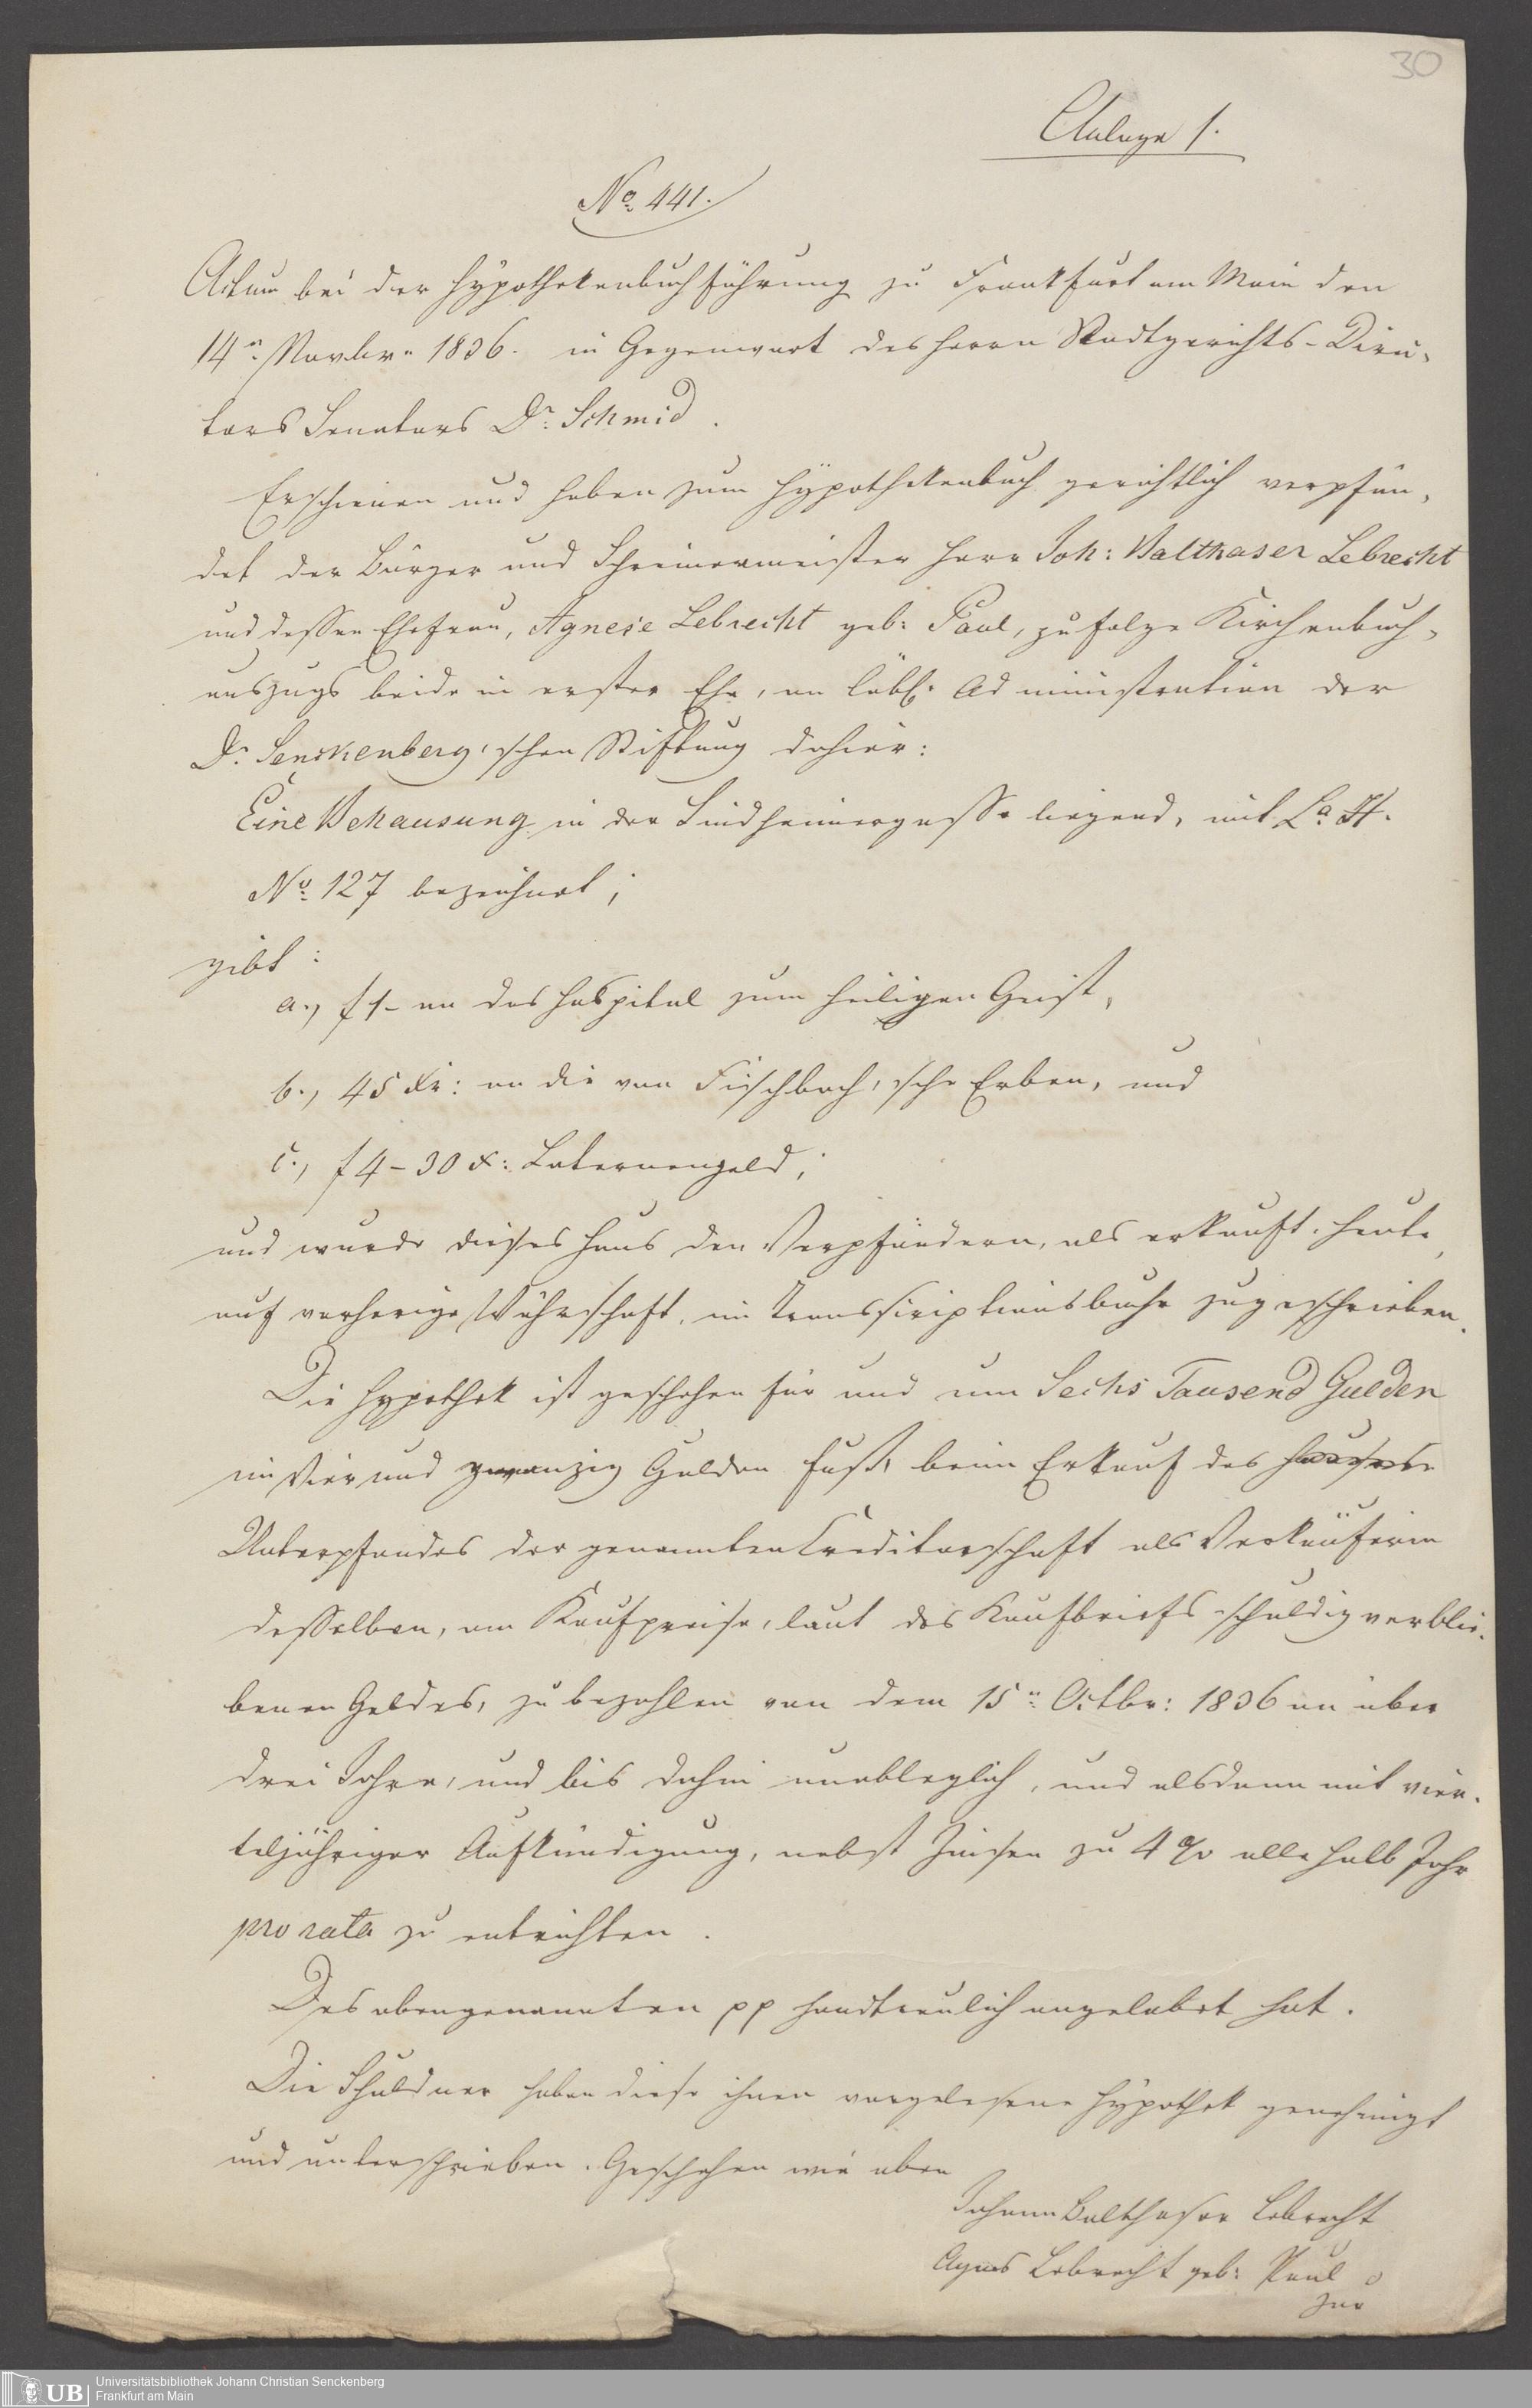 30
Anlage 1.
No. 441.
Actum bei der Hypothekenbuchführung zu Frankfurt am Main den
14n. Novbr. 1836. in Gegenwart des Herrn Stadtgerichts-Direc-
tors Senators Dr. Schmid.
Erschienen und haben zum Hypothekenbuch gerichtlich verpfän-
det der Bürger und Schreinermeister Herr Joh: Balthaser Lebrecht
und dessen Ehefrau, Agnese Lebrecht geb: Paul, zufolge Kirchenbuch-
auszugs beide in erster Ehe, an löbl: Administration der
Dr. Senckenberg'schen Stiftung dahier:
Eine Behausung in der Lindheimergasse liegend, mit La. H.
No. 127 bezeichnet;
gibt:
a., f 1- an das Hospital zum heiligen Geist,
b., 45 Xr: an die von Fischbach'sche Erben, und
c., f 4-30 x: Laternengeld;
und wurde dieses Haus den Verpfändern, als erkauft, heute,
auf vorherige Währschaft, im Transscriptionsbuche zugeschrieben.
Die Hypothek ist geschehen für und um Sechs Tausend Gulden
im Vier und zwanzig Gulden Fuß, beim Erkauf des Hauses
Unterpfandes der genannten Creditorschaft als Verkäuferin
desselben, am Kaufpreise, laut des Kaufbriefs schuldig verblie-
benen Geldes, zu bezahlen von dem 15n. Octbr: 1836 an über
drei Jahre, und bis dahin unableglich, und alsdann mit vier-
teljähriger Aufkündigung, nebst Zinsen zu 4 % alle halb Jahr
pro rata zu entrichten.
Des obengenannten pp handtreulich angelobt hat.
Die Schuldner haben diese ihnen vorgelesene Hypothek genehmigt
und unterschrieben. Geschehen wie oben
Johann Balthasar Lebrecht
Agnes Lebrecht geb: Paul
Zur
UB Universitätsbibliothek Johann Christian Senckenberg
Frankfurt am Main